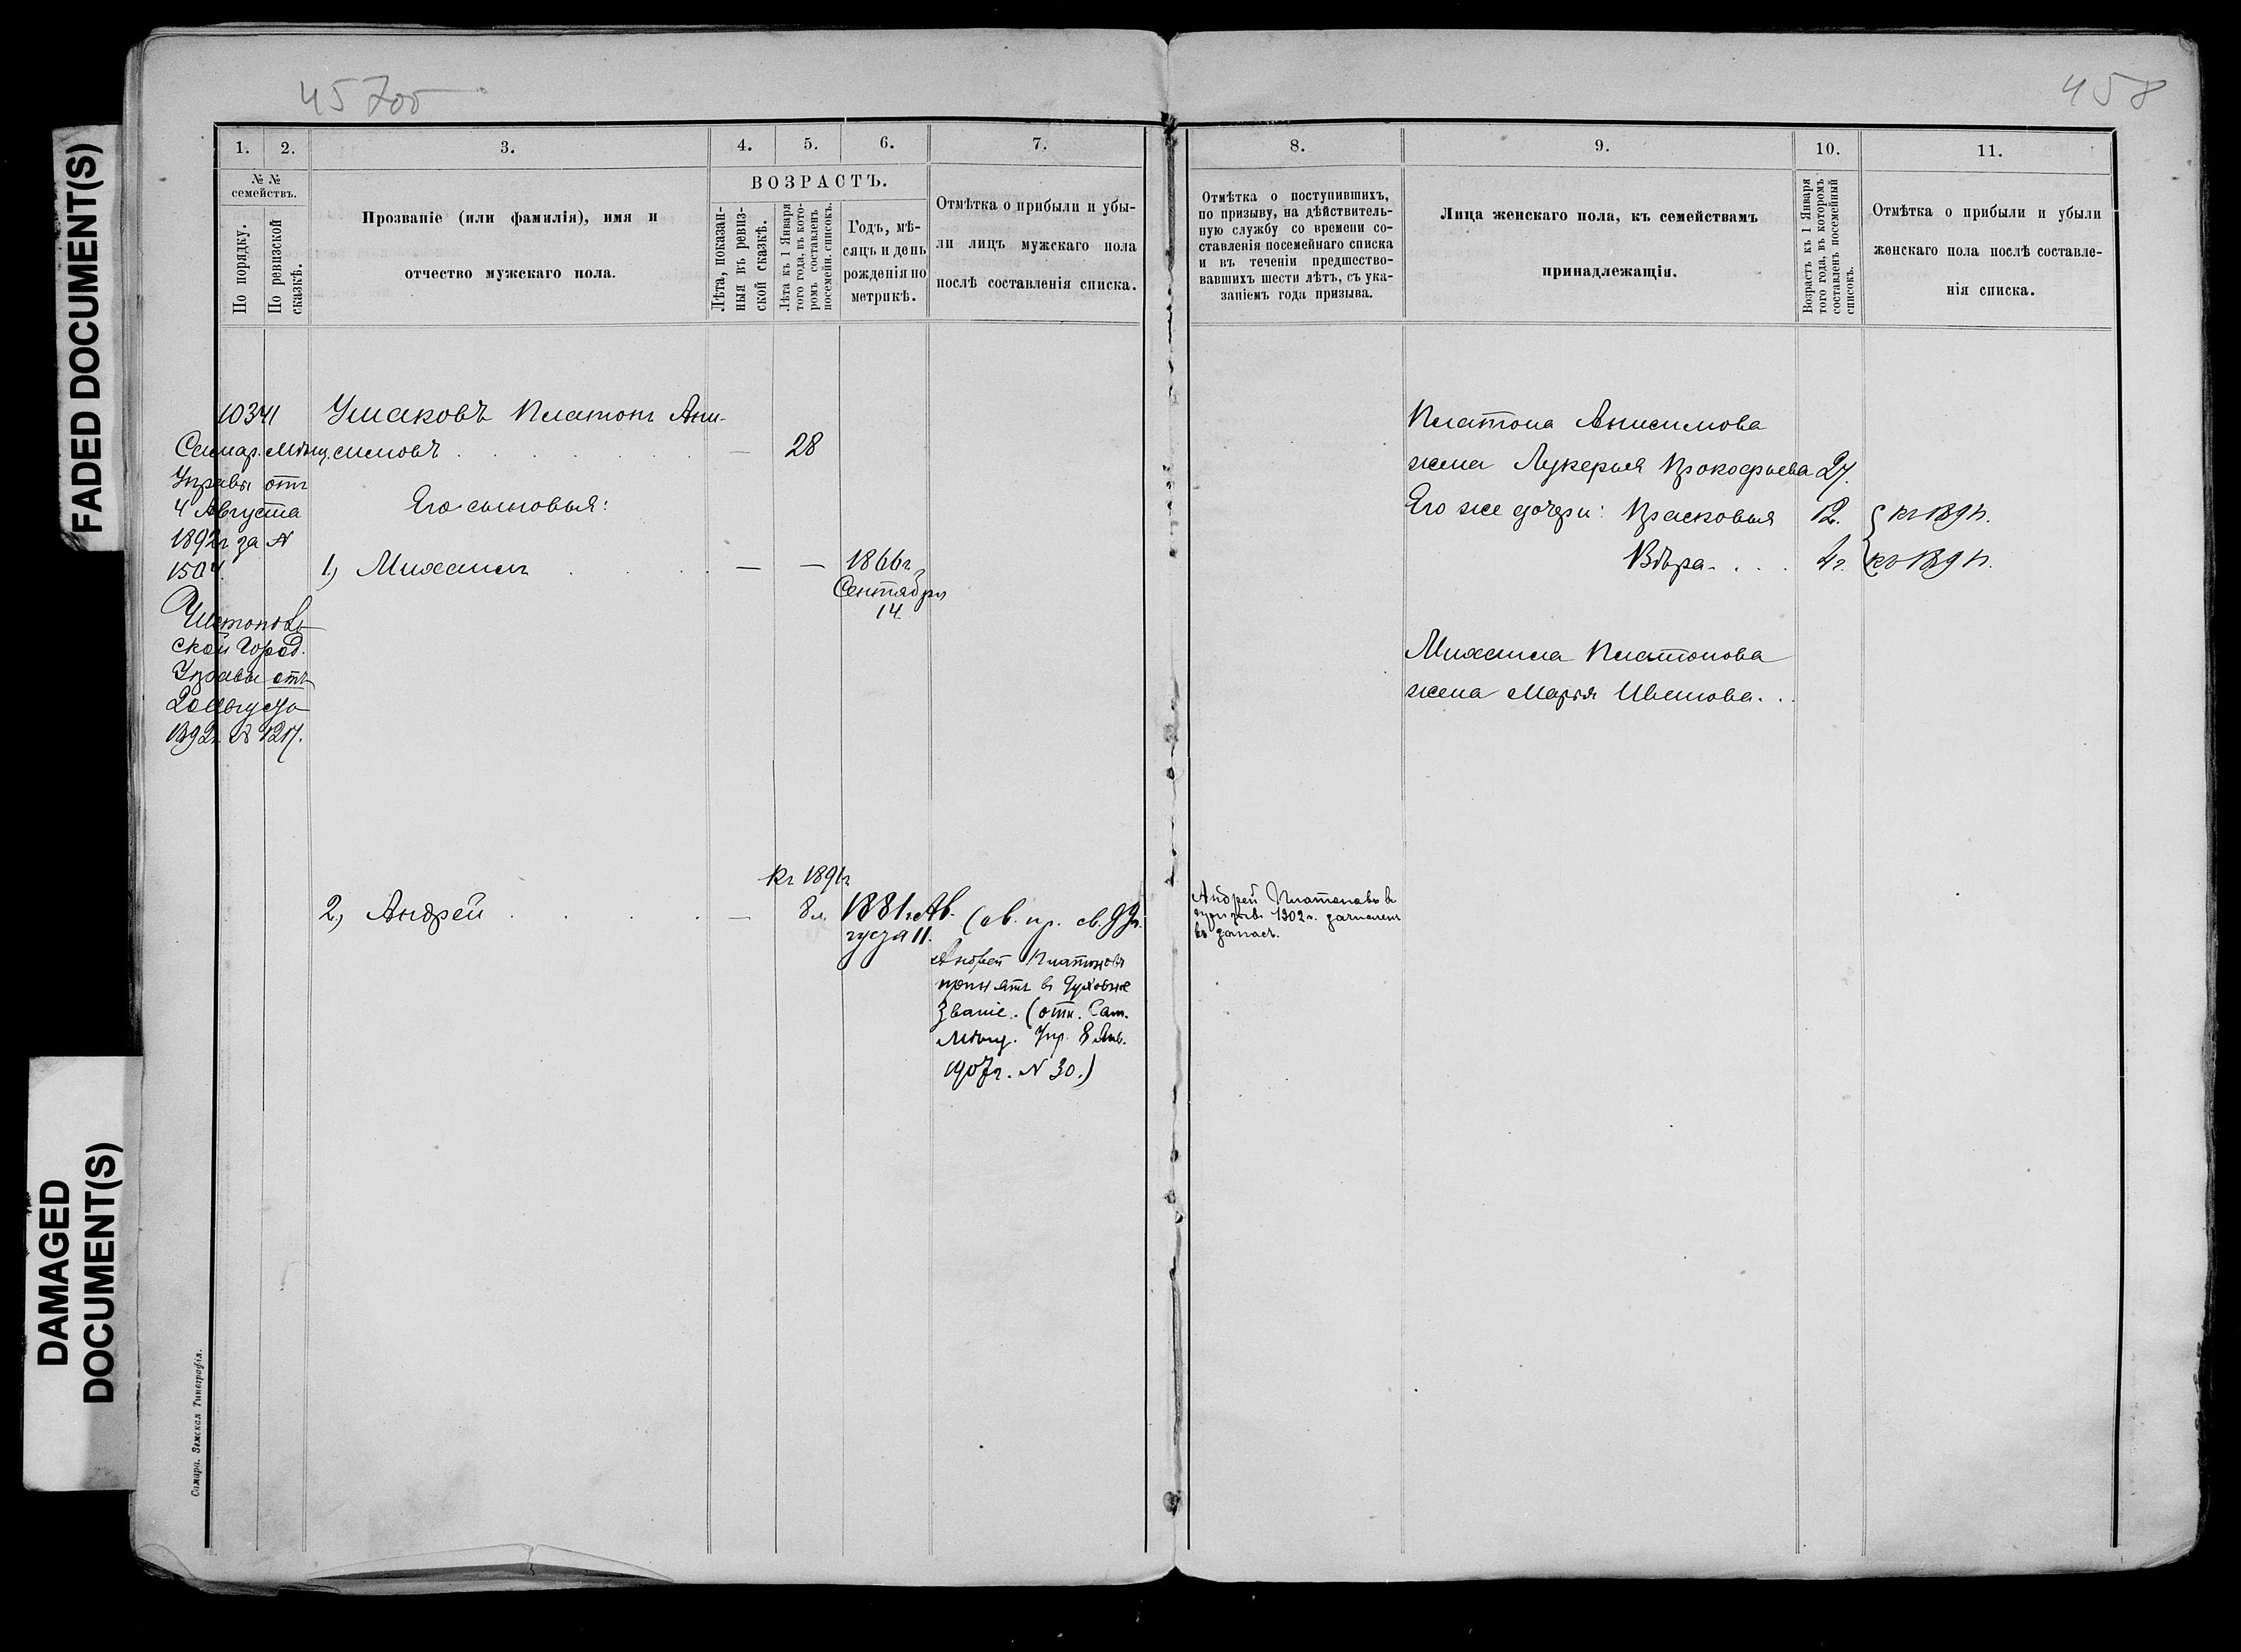 FADED DOCUMENT(S)
DAMAGED
DOCUMENT(S)
457об
1.
2.
3.
4.
5.
6.
7.
№ №
семействъ.
По порядку.
По ревизской
сказкѣ.
Прозваніе (или фамилія), имя и
отчество мужскаго пола.
ВОЗРАСТЪ.
Лѣта, показан-
ныя въ ревиз-
ской сказкѣ.
Лѣта къ 1 Января
того года, въ кото-
ромъ составленъ
посемейн. списокъ.
Годъ, мѣ-
сяцъ и день
рожденія по
метрикѣ.
Отмѣтка о прибыли и убы-
ли лицъ мужскаго пола
послѣ составленія списка.
10341
Самар. Мѣщ.
Управы отъ
4 Августа
1892г за №
1504.
ской Город.
Управы отъ
1892г № 1217.
Ушаковъ Платонъ Ани-
симовъ . . . . . — 28
Его сыновья:
1.) Михаилъ . . . — — 1866г.
Сентября
14.
къ 1891г
2.) Андрей . . . . — 8л. 1881г. Ав-
густа 11.
Андрей Платоновъ
принятъ въ духовное
званіе. (отн. Сам.
Мѣщ. Упр. 8 Янв.
1907г. № 30.)
Самара. Земская Типографія.
458
8.
9.
10.
11.
Отмѣтка о поступившихъ,
по призыву, на дѣйствитель-
ную службу со времени со-
ставленія посемейнаго списка
и въ теченіи предшество-
вавшихъ шести лѣтъ, съ ука-
заніемъ года призыва.
Лица женскаго пола, къ семействамъ
принадлежащія.
Возрастъ къ 1 Января
того года, въ которомъ
составленъ посемейный
списокъ.
Отмѣтка о прибыли и убыли
женскаго пола послѣ составле-
нія списка.
Платона Анисимова
жена Лукерья Прокофьева 27.
Его же дочери: Прасковья 12. къ 1891г.
Вѣра. . . . 4г. къ 1891г.
Михаила Платонова
жена Марья Иванова. . .
Андрей Платоновъ въ
призывъ 1902г. зачисленъ
въ запасъ.